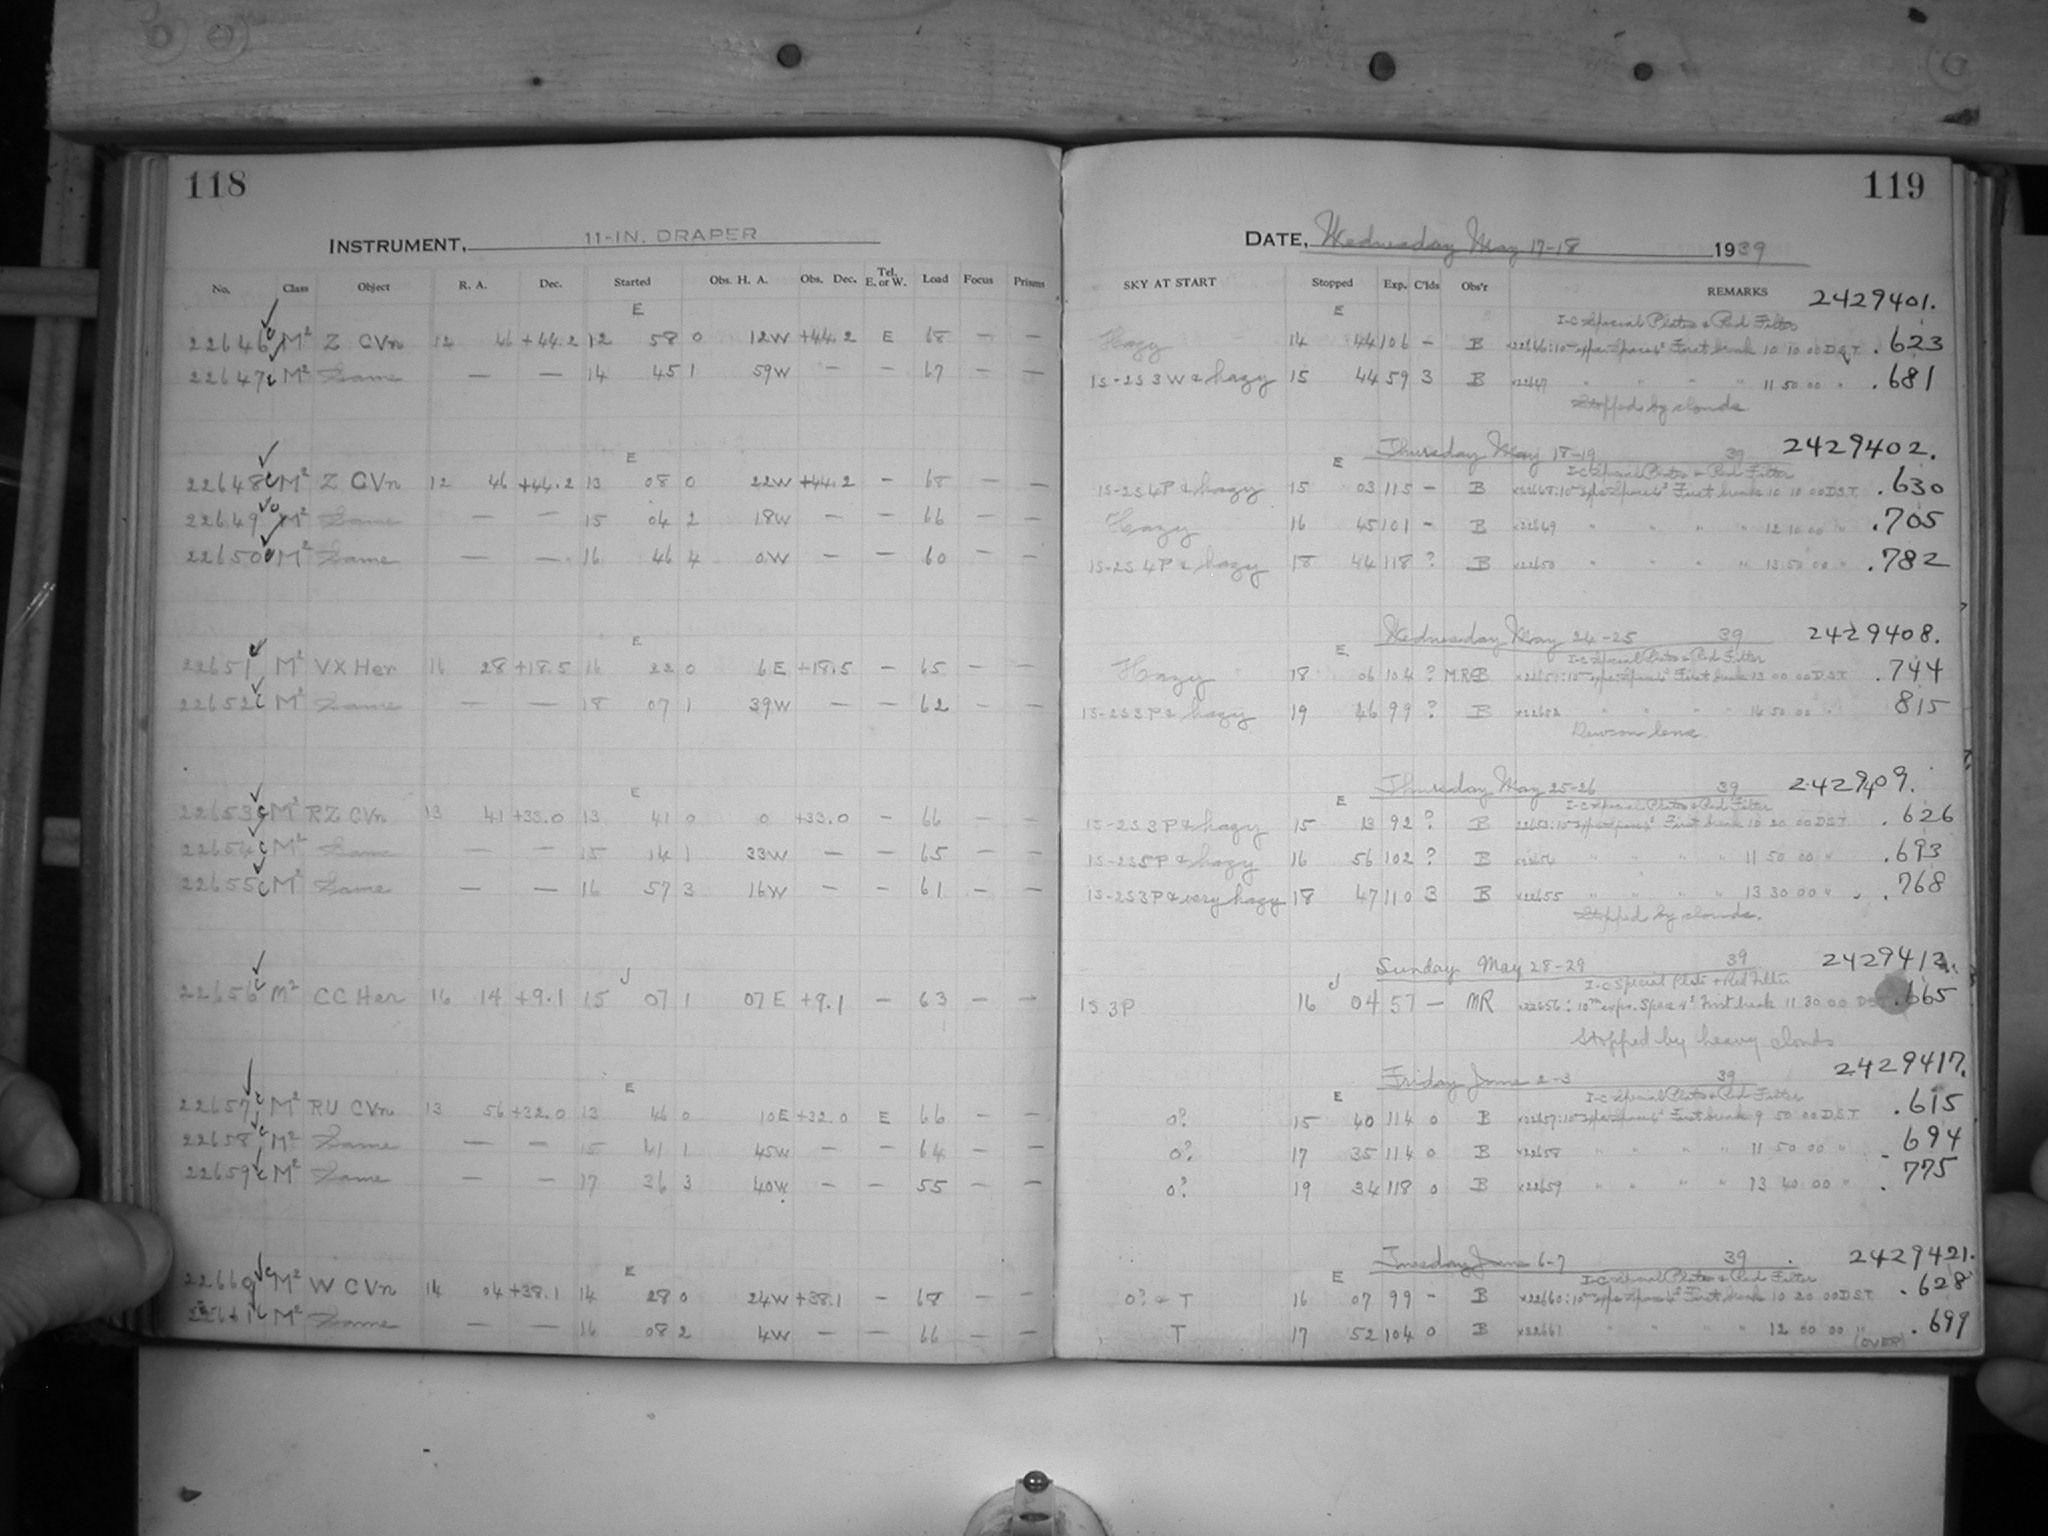 118
INSTRUMENT, 11-IN. DRAPER
No. Class Object R. A. Dec. Started Obs. H. A. Obs. Dec. Tel. E. or W. Load Focus Prisms
E
22646 c M² Z CVn 12 46 +44.2 12 58 0 12W +44.2 E 68 — —
22647 c M² Same — — 14 45 1 59W — — 67 — —
E
22648 c M² Z CVn 12 46 +44.2 13 08 0 22W +44.2 — 68 — —
22649 c M² Same — — 15 04 2 18W — — 66 — —
22650 c M² Same — — 16 46 4 0W — — 60 — —
E
22651 M² VX Her 16 28 +18.5 16 22 0 6E +18.5 — 65 — —
22652 c M² Same — — 18 07 1 39W — — 62 — —
E
22653 c M² RZ CVn 13 41 +33.0 13 41 0 0 +33.0 — 66 — —
22654 c M² Same — — 15 14 1 33W — — 65 — —
22655 c M² Same — — 16 57 3 16W — — 61 — —
J
22656 c M² CC Her 16 14 +9.1 15 07 1 07E +9.1 — 63 — —
E
22657 c M² RU CVn 13 56 +32.0 13 46 0 10E +32.0 E 66 — —
22658 c M² Same — — 15 41 1 45W — — 64 — —
22659 c M² Same — — 17 36 3 40W — — 55 — —
E
22660 c M² W CVn 14 04 +38.1 14 28 0 24W +38.1 — 68 — —
22661 c M² Same — — 16 08 2 4W — — 66 — —
119
DATE, Wednesday May 17-18 1939
SKY AT START Stopped Exp. C'lds Obs'r REMARKS 2429401.
E I-C Special Plates & Red Filter
Hazy 14 44 106 — B x22646: 10m expr. Space 4s First break 10 10 00 D.S.T. .623
1S-2S 3W & hazy 15 44 59 3 B x22647 " " " " 11 50 00 " .681
Stopped by clouds
Thursday May 18-19 39 2429402.
E I-C Special Plates & Red Filter
1S-2S 4P & hazy 15 03 115 — B x22648: 10m expr. Space 4s First break 10 10 00 D.S.T. .630
Hazy 16 45 101 — B x22649 " " " " 12 10 00 " .705
1S-2S 4P & hazy 18 44 118 ? B x22650 " " " " 13 50 00 " .782
Wednesday May 24-25 39 2429408.
E. I-C Special Plates & Red Filter
Hazy 18 06 104 ? MR&B x22651: 10m expr. Space 4s First break 13 00 00 D.S.T. .744
1S-2S 3P & hazy 19 46 99 ? B x22652 " " " " 14 50 00 " 815
Dew on lens.
Thursday May 25-26 39 2429409.
E I-C Special Plates & Red Filter
1S-2S 3P & hazy 15 13 92 ? B 22653: 10m expr. Space 4s First break 10 20 00 D.S.T. .626
1S-2S 5P & hazy 16 56 102 ? B x22654 " " " " 11 50 00 " .693
1S-2S 3P & very hazy 18 47 110 3 B x22655 " " " " 13 30 00 " .768
Stopped by clouds.
Sunday May 28-29 39 2429412.
J I-C Special Plate + Red Filter
1S 3P 16 04 57 — MR x22656: 10m expr. Space 4s First break 11 30 00 .665
Stopped by heavy clouds
Friday June 2-3 39 2429417.
E I-C Special Plates & Red Filter
0? 15 40 114 0 B x22657: 10m expr. Space 4s First break 9 50 00 D.S.T. .615
0? 17 35 114 0 B x22658 " " " " 11 50 00 " .694
0? 19 34 118 0 B x22659 " " " " 13 40 00 " .775
Tuesday June 6-7 39 2429421.
E I-C Special Plates & Red Filter
0? & T 16 07 99 — B x22660: 10m expr. Space 4s First break 10 20 00 D.S.T. .628
T 17 52 104 0 B x22661 " " " " 12 00 00 " .699
(OVER)